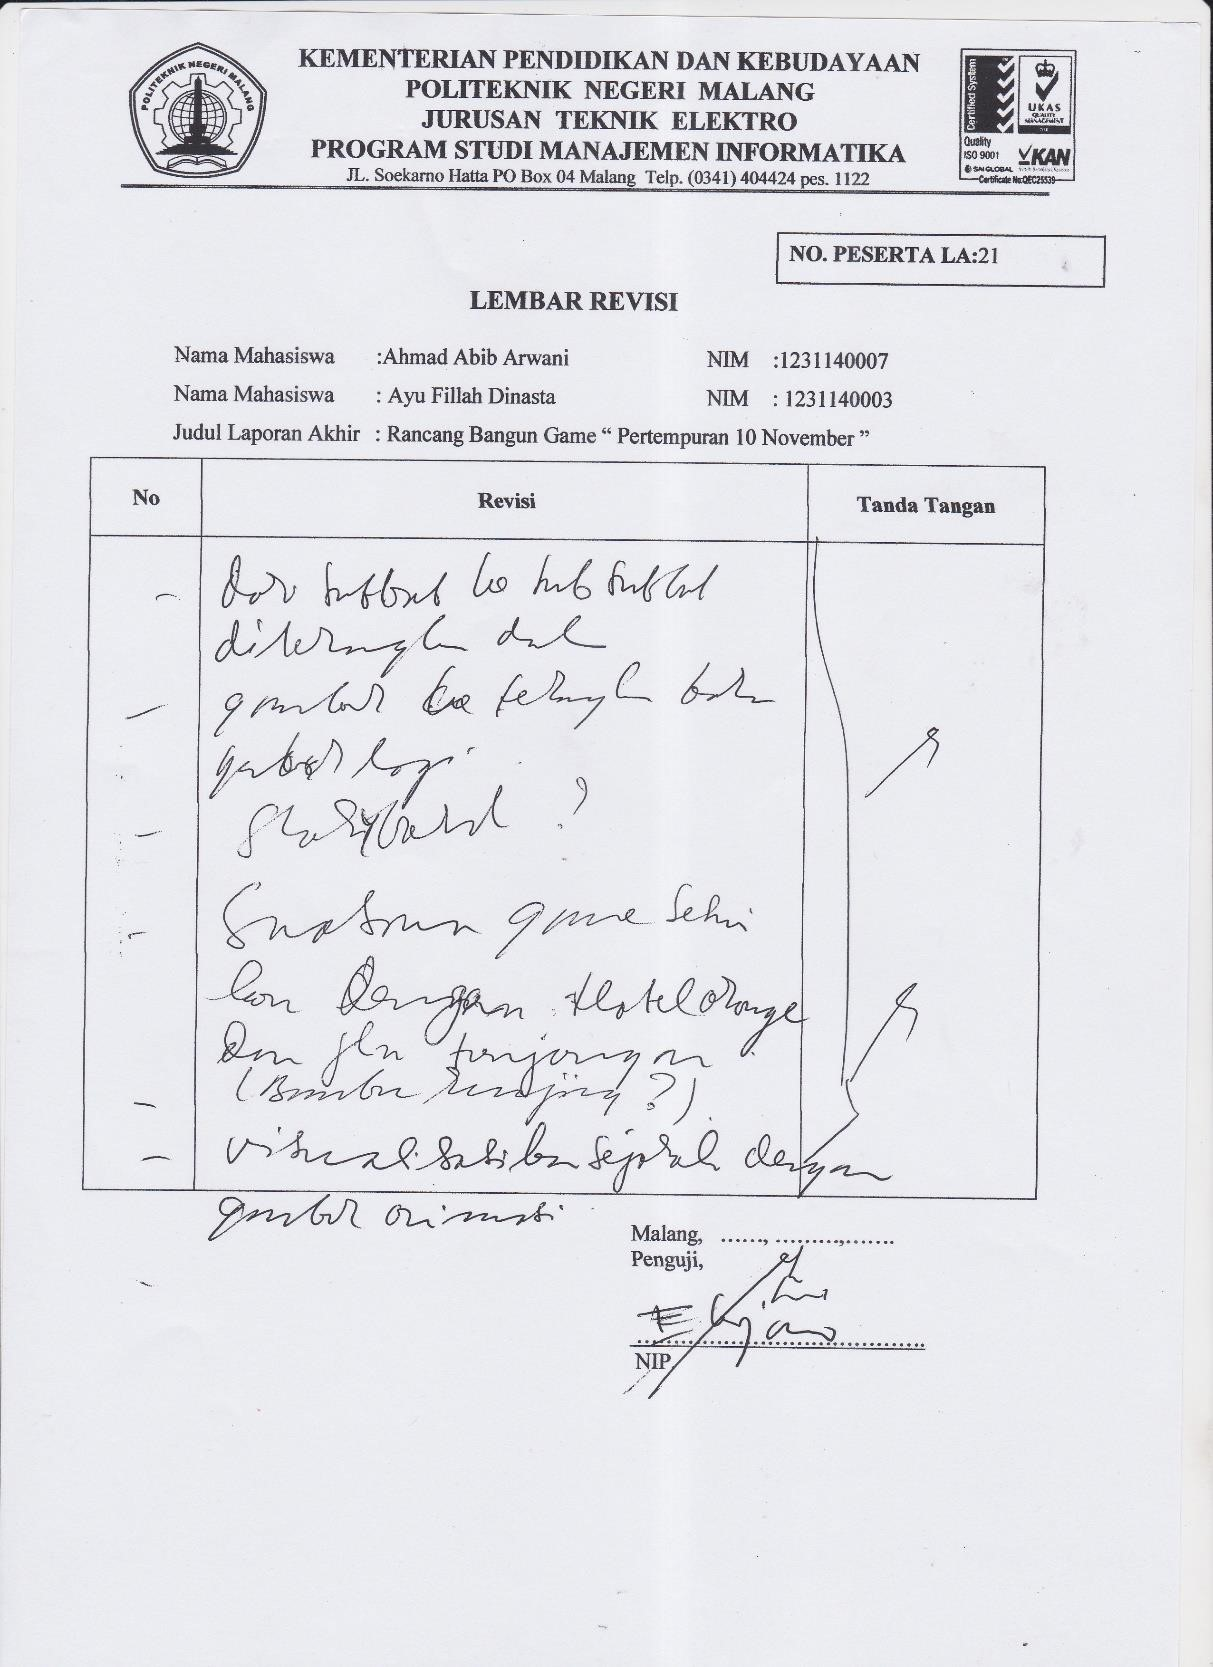 KEMENTERIAN PENDIDIKAN DAN KEBUDAYAAN
POLITEKNIK NEGERI MALANG
JURUSAN TEKNIK ELEKTRO
PROGRAM STUDI MANAJEMEN INFORMATIKA
JL. Soekarno Hatta PO Box 04 Malang Telp. (0341) 404424 pes. 1122
POLITEKNIK NEGERI MALANG
Certified System
UKAS
QUALITY
MANAGEMENT
Quality
ISO 9001
KAN
SAI GLOBAL
Certificate No:QEC25539
NO. PESERTA LA:21
LEMBAR REVISI
Nama Mahasiswa :Ahmad Abib Arwani NIM :1231140007
Nama Mahasiswa : Ayu Fillah Dinasta NIM : 1231140003
Judul Laporan Akhir : Rancang Bangun Game “ Pertempuran 10 November ”
No Revisi Tanda Tangan
- Dari subbab ke sub subbab
- gambar
- Storyboard ?
- Suasana game
kan Dengan Hotel Orange
Dan jln tunjungan.
- (Bambu runcing ?)
- visualisasikan sejarah dengan
gambar animasi
Malang, ......, .........,.......
Penguji,
NIP